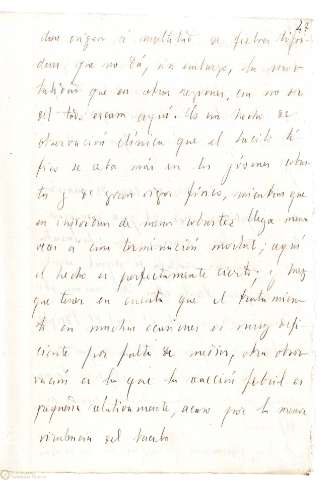 23
dan origen á multitud de fiebres tifoi-
deas que no dá, sin embargo, la mor-
talidad que en otras regiones, aun no sien
del todo escasa aquí. Es un hecho de
observacion clínica que el bacilo tí
fico se ceba más en los jóvenes robus
tos y de gran vigor físico, mientras que
en individuos de menor robustez llega menos
veces a una terminación mortal; aquí
el hecho es perfectamente cierto; y hay
que tener en cuenta que el tratamien
to en muchas ocasiones es muy defi
ciente por falta de medios, otra obser
vación es la que la reacción febril es
pequeña relativamente, acaso por la menor
virulencia del bacilo